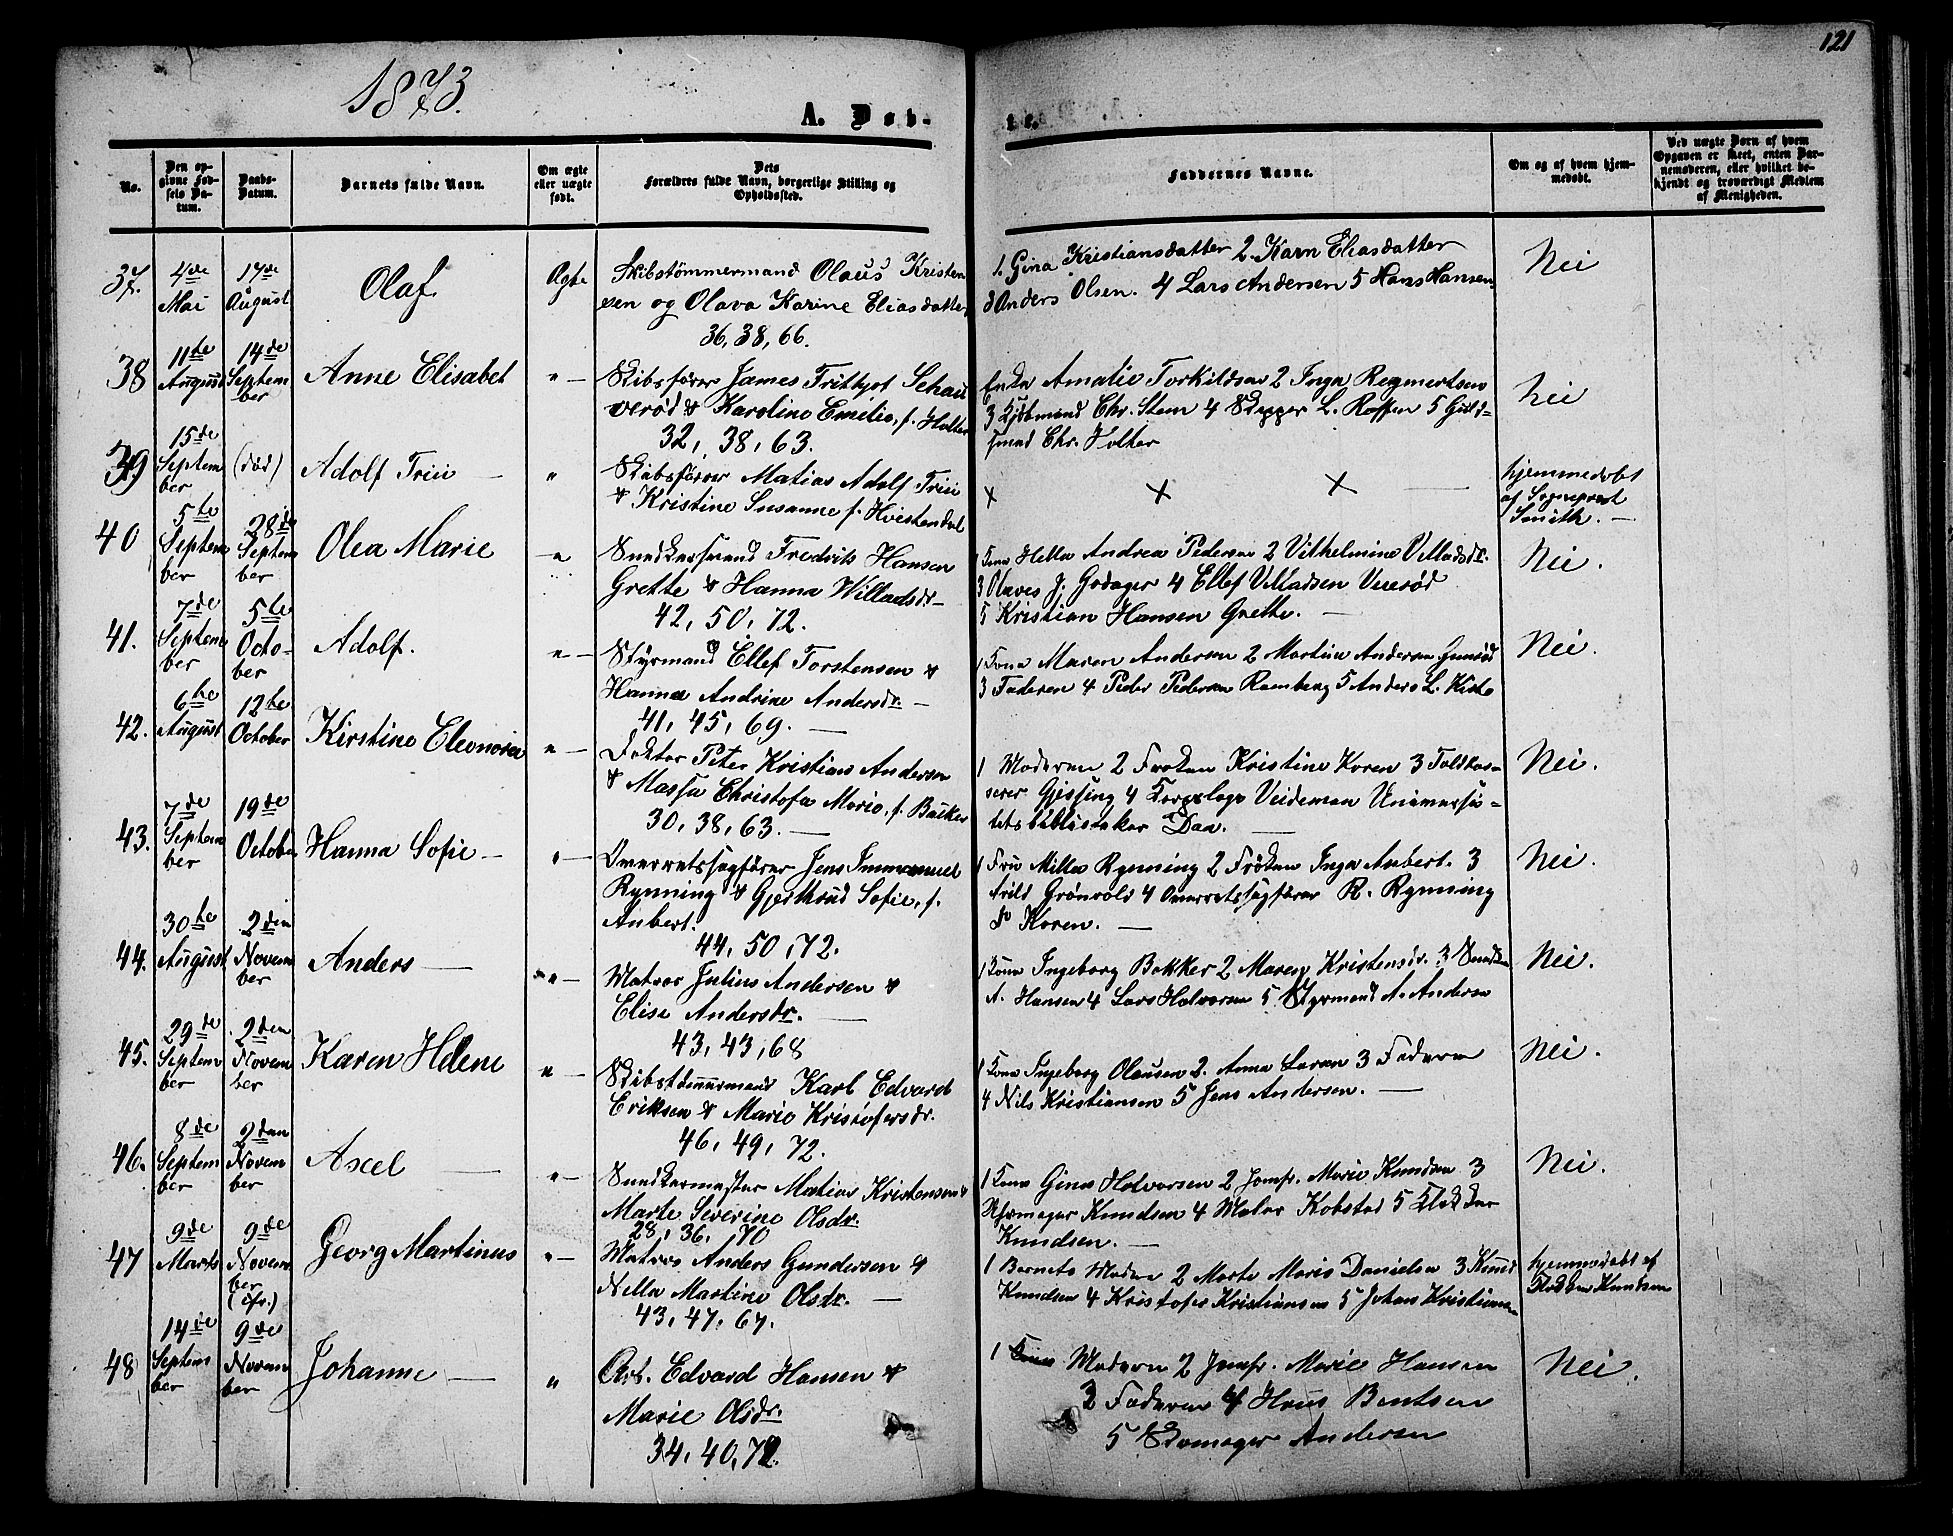 121
1873.
A. Døb-
te.
No.
Den opgivne Fødsels Datum.
Daabs-Datum.
Barnets fulde Navn.
Om ægte eller uægte født.
Dets Forældres fulde Navn, borgerlige Stilling og Opholdssted.
Faddernes Navne.
Om og af hvem hjemmedøbt.
Ved uægte Børn af hvem Opgaven er skeet, enten Barnemoderen, eller hvilket bekjendt og troværdigt Medlem af Menigheden.
37. 4de Mai 17de August Olaf. Ægte Skibstømmermand Olaus Kristen
sen og Olava Karine Eliasdatter
36, 38, 66.
1. Gina Kristiansdatter 2. Karn Eliasdatter
3 Anders Olsen. 4 Lars Andersen 5 Hans Hansen
Nei
38 11te August 14de September Anne Elisabet " — Skibsfører James Frithjof Schau
verød & Karoline Emilie, f. Holter
32, 38, 63.
Enke Amalie Torkildsen 2 Inga Regnertsen
3 Kjøbmand Chr. Stem 4 Skipper L. Roffen 5 Guld-
smed Chr. Holter
Nei
39 15de September (død) Adolf Friis — " Skibsfører Matias Adolf Friis
& Kristine Susanne f. Hvistendal
x x x —
hjemmedøbt
af Sogneprest
Smith. —
40 5te September 28de September Olea Marie — " Snedkersvend Fredrik Hansen
Grette & Hanna Willadsdr —
42, 50, 72.
1 Kone Helle Andrea Pedersen 2 Vilhelmine Villadsdr.
3 Olaves J. Godager 4 Ellef Villadsen Vererød
5 Kristian Hansen Grette. —
Nei.
41. 7de September 5te October Adolf. " — Styrmand Ellef Torstensen &
Hanna Andrine Andersdr. —
41, 45, 69. —
1 Kone Maren Andersen 2 Martine Andersen
3 Faderen 4 Peder Pedersen Ramberg 5 Anders L. Kiste
Nei.
42. 6te August 12te October Kirstine Eleonora " — Doktor Peter Kristian Andersen
& Massa Christofa Marie, f. Backer
30, 38, 63. —
1 Moderen 2 Frøken Kristine Koren 3 Toldkas-
serer Gjessing 4 Korpslæge Veideman Universi-
tetsbibliotekar Daa. —
Nei.
43. 7de September 19de October Hanna Sofie — " — Overretssagfører Jens Immanuel
Rynning & Gjertrud Sofie, f.
Aubert.
44, 50, 72.
1 Fru Milla Rynning 2 Frøken Inga Aubert. 3
Grønvold 4 Overretssagfører R. Rynning
Koren. —
Nei.
44. 30te August 2den November Anders — " — Matros Julius Andersen &
Elise Andersdr. —
43, 43, 68
1 Kone Ingeborg Bakker 2 Maren Kristensdr. 3 Snedker
A. Hansen 4 Lars Halvorsen 5 Styrmand A. Andersen
Nei.
45. 29de September 2den November Karen Helene " — Skibstømmermand Karl Edvard
Eriksen & Marie Kristofersdr.
46, 49, 72.
1 Kone Ingeborg Olausen 2. Anna Larsen 3 Faderen
4 Nils Kristiansen 5 Jens Andersen. —
Nei.
46. 8de September 2den November Axel — " — Snedkermester Matias Kristensen &
Marte Severine Olsdr.
28, 36, 70
1 Kone Gina Halvorsen 2 Jomfr. Marie Knudsen 3
Uhrmager Knudsen 4 Maler Kobstad 5 Klokker
Knudsen. —
Nei.
47 9de Marts 9de November (cfr.) Georg Martinus " — Matros Anders Gundersen &
Nilla Martine Olsdr. —
43, 47, 67.
1 Barnets Moder 2 Marte Marie Danielsen 3 Knud
Knudsen 4 Kristofer Kristiansen 5 Johan Kristiansen
hjemmedøbt af
Klokker Knudsen
48 14de September 9de November Johanne — " Arb. Edvard Hansen &
Marie Olsdr.
34, 40, 72.
1 Moderen 2 Jomfr. Marie Hansen
3 Faderen 4 Hans Bentsen
5 Skomager Andersen
Nei.